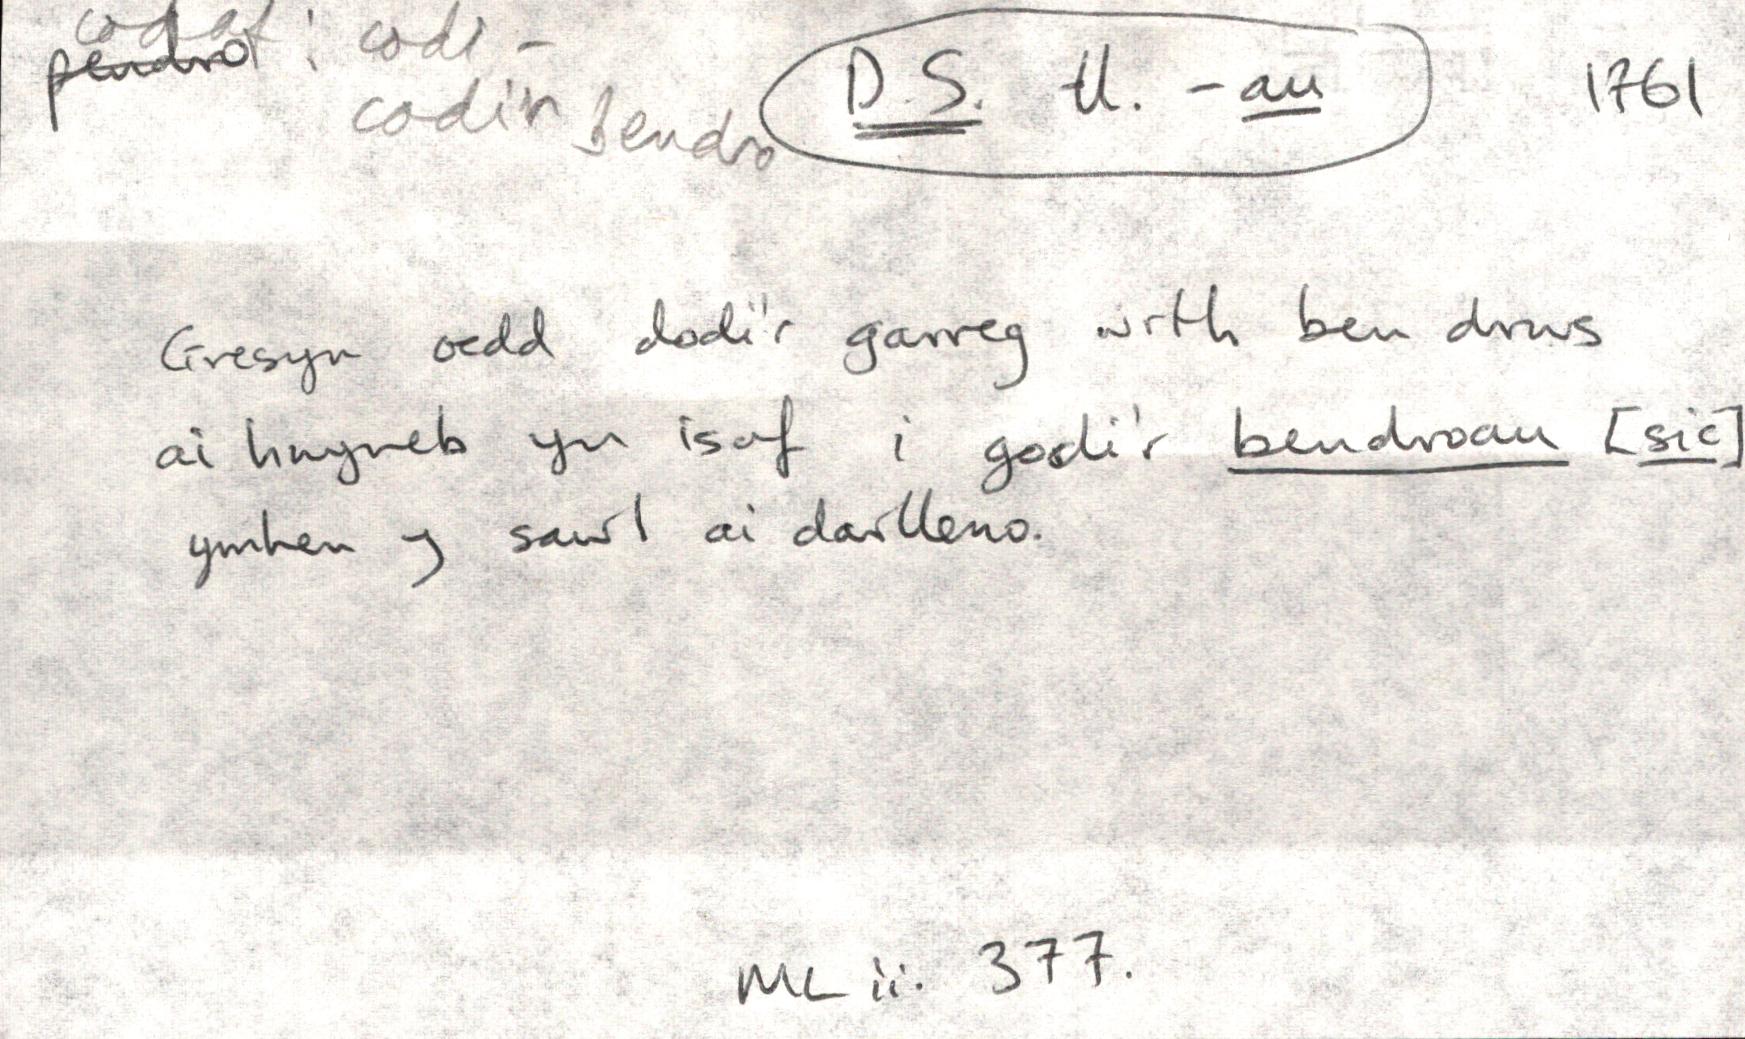 codaf: codi -
pendro
codi'r bendro
D.S. ll. -au 1761
Gresyn oedd dodi'r garreg wrth ben drws
ai hwyneb yn isaf i godi'r bendroau [sic]
ymhen y sawl ai darlleno.
ML ii. 377.